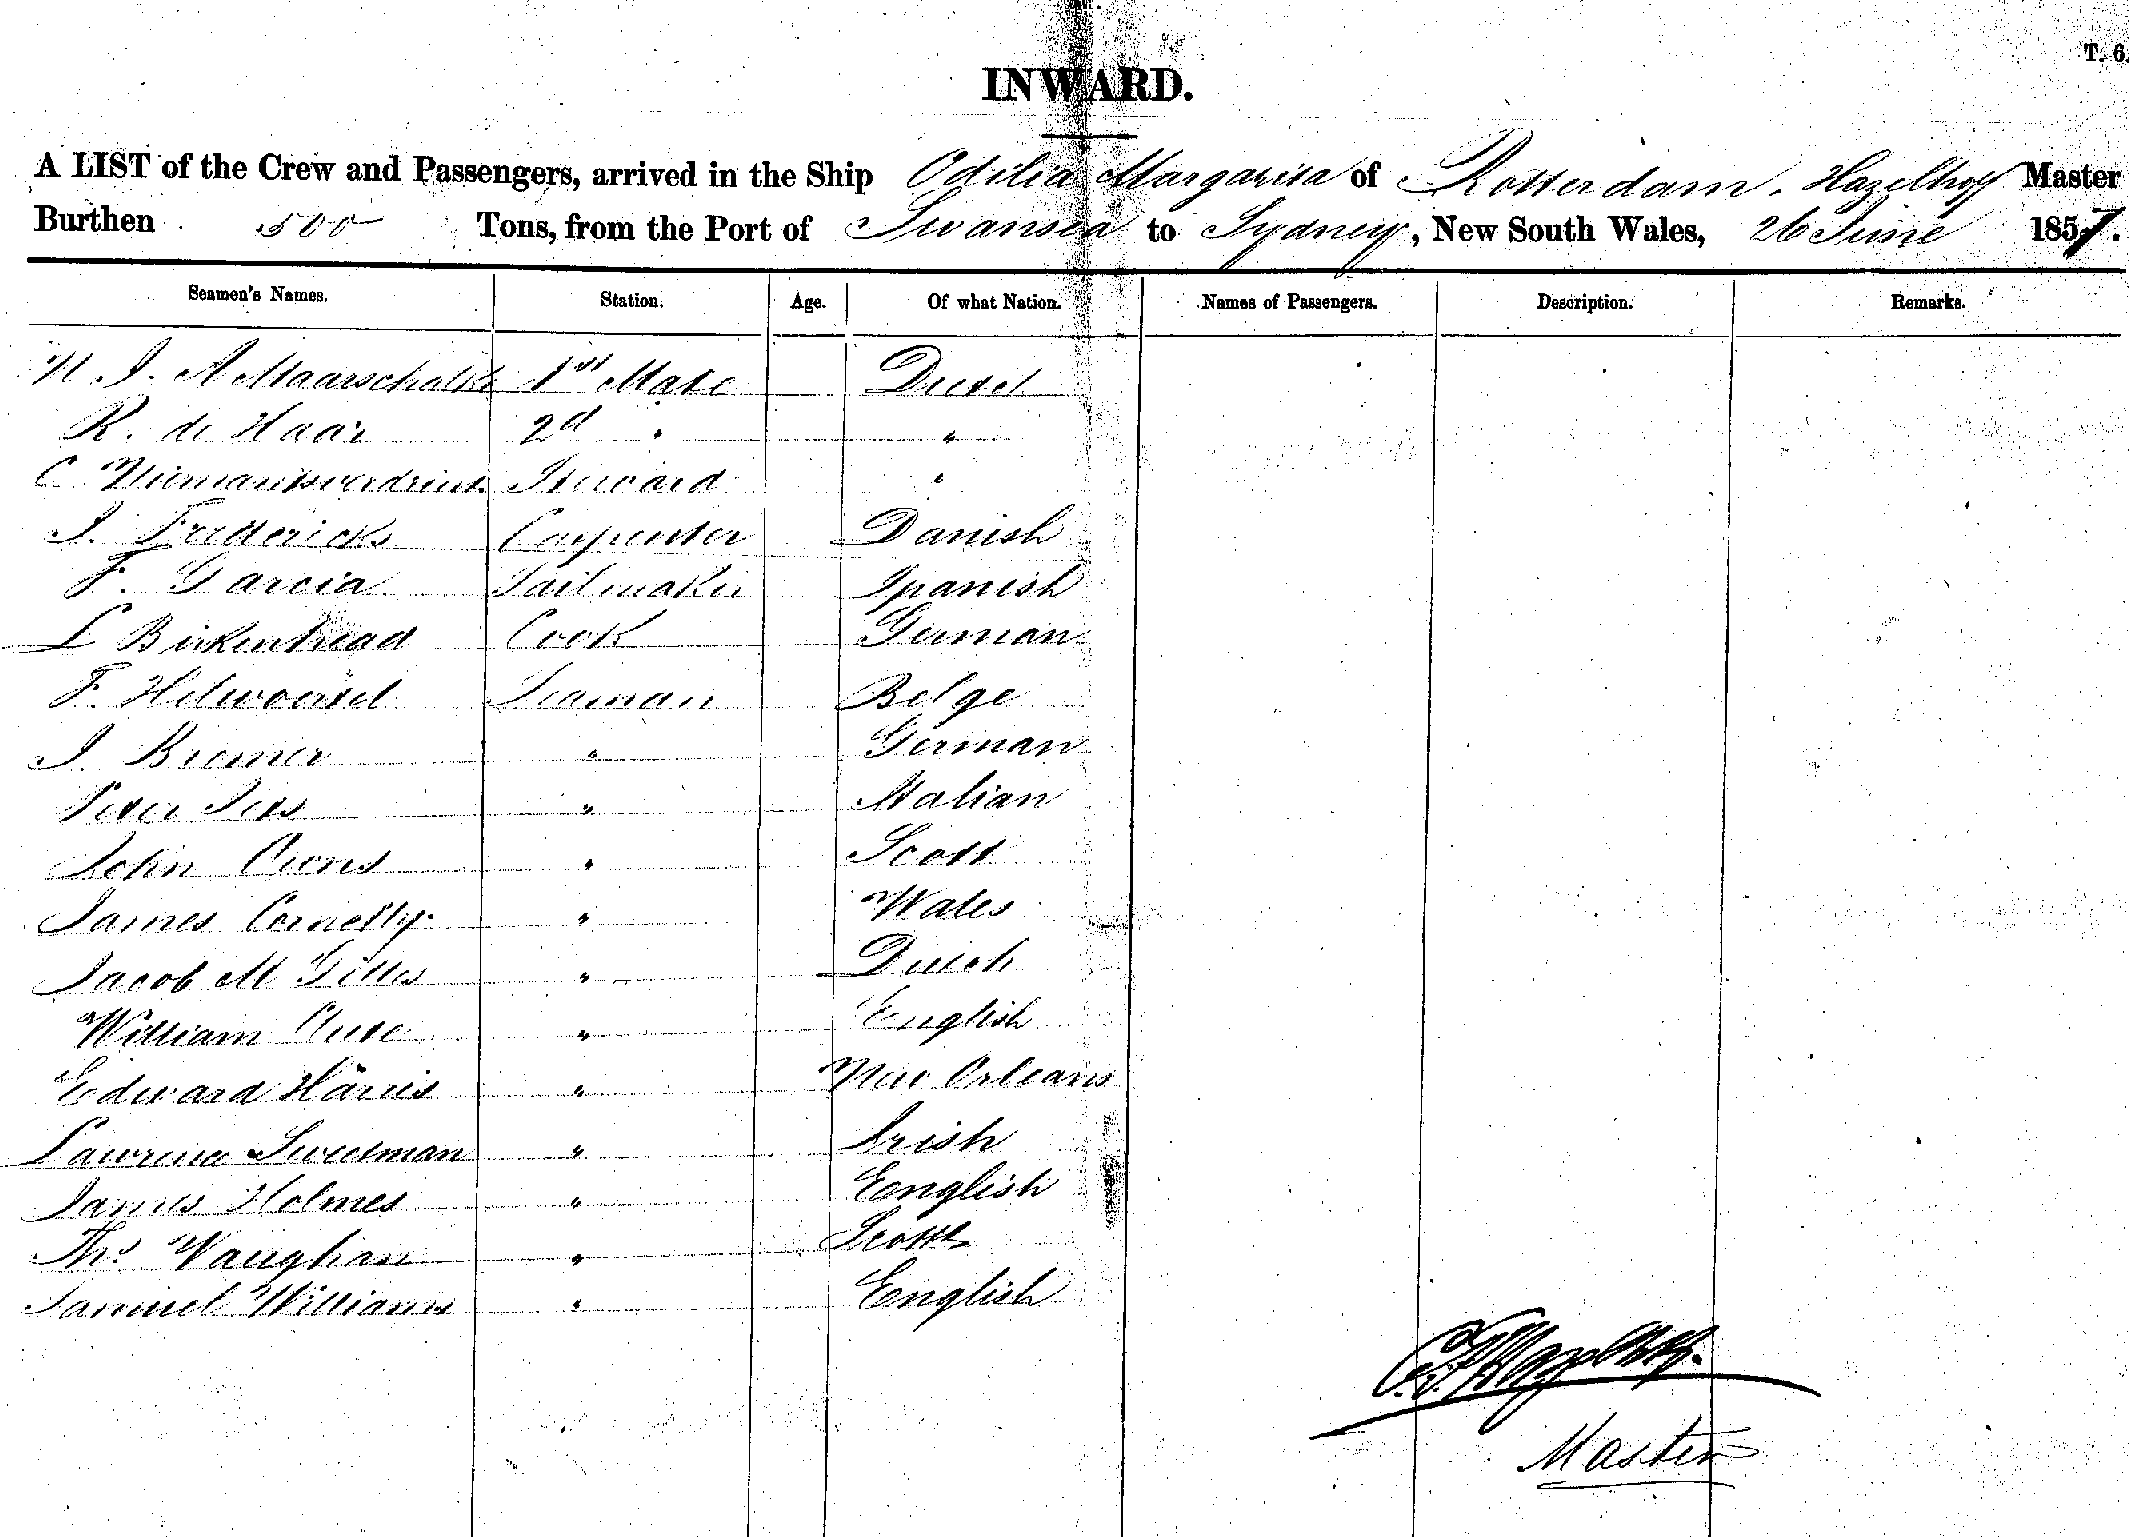 T. 6.
INWARD.
A LIST of the Crew and Passengers, arrived in the Ship Odilia Margarita of Rotterdam. Hazelhoff Master
Burthen 500 Tons, from the Port of Swansea to Sydney, New South Wales, 26 June 1857.
Seamen's Names. Station. Age. Of what Nation. Names of Passengers. Description. Remarks.
N. J. A Maarschalk 1st Mate Dutch
R. de Haar 2d " "
C Niemantsverdriet Steward "
J. Fredericks Carpenter Danish
F. Garcia Sailmaker Spanish
L Birkenhead Cook German
F. Seaman Belge
J. Bremer " German
Peter " Italian
John " Scott
James Connelly " Wales
Jacob M Gilles " Dutch
William " English
Edward Harris " New Orleans
Lawrence Sweetman " Irish
James Holmes " English
Ths Vaughan " Scott
Samuel Williams " English
Master